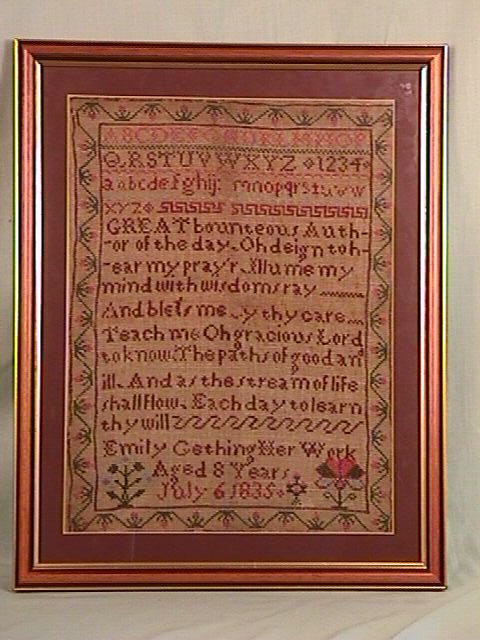 ABCDEFGHIJKLMNOP
QRSTUVWXYZ 1234
aabcdefghij: mnopqrstuvw
xyz
GREAT bounteous Auth-
-or of the day. Oh deign to h-
-ear my pray'r. Illume my
mind with wisdoms ray
And blefs me y thy care
Teach me Oh gracious Lord
to know The paths of good an
ill. And as the stream of life
shall flow. Each day to learn
thy will
Emily Gething Her Work
Aged 8 Years
July 6 1835